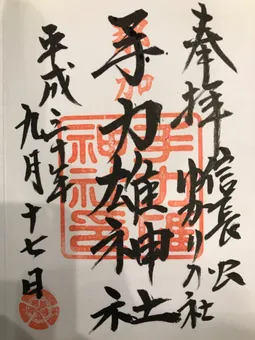 奉拝
信長公
ゆかりの社
手力雄神社
平成三十年
九月十七日